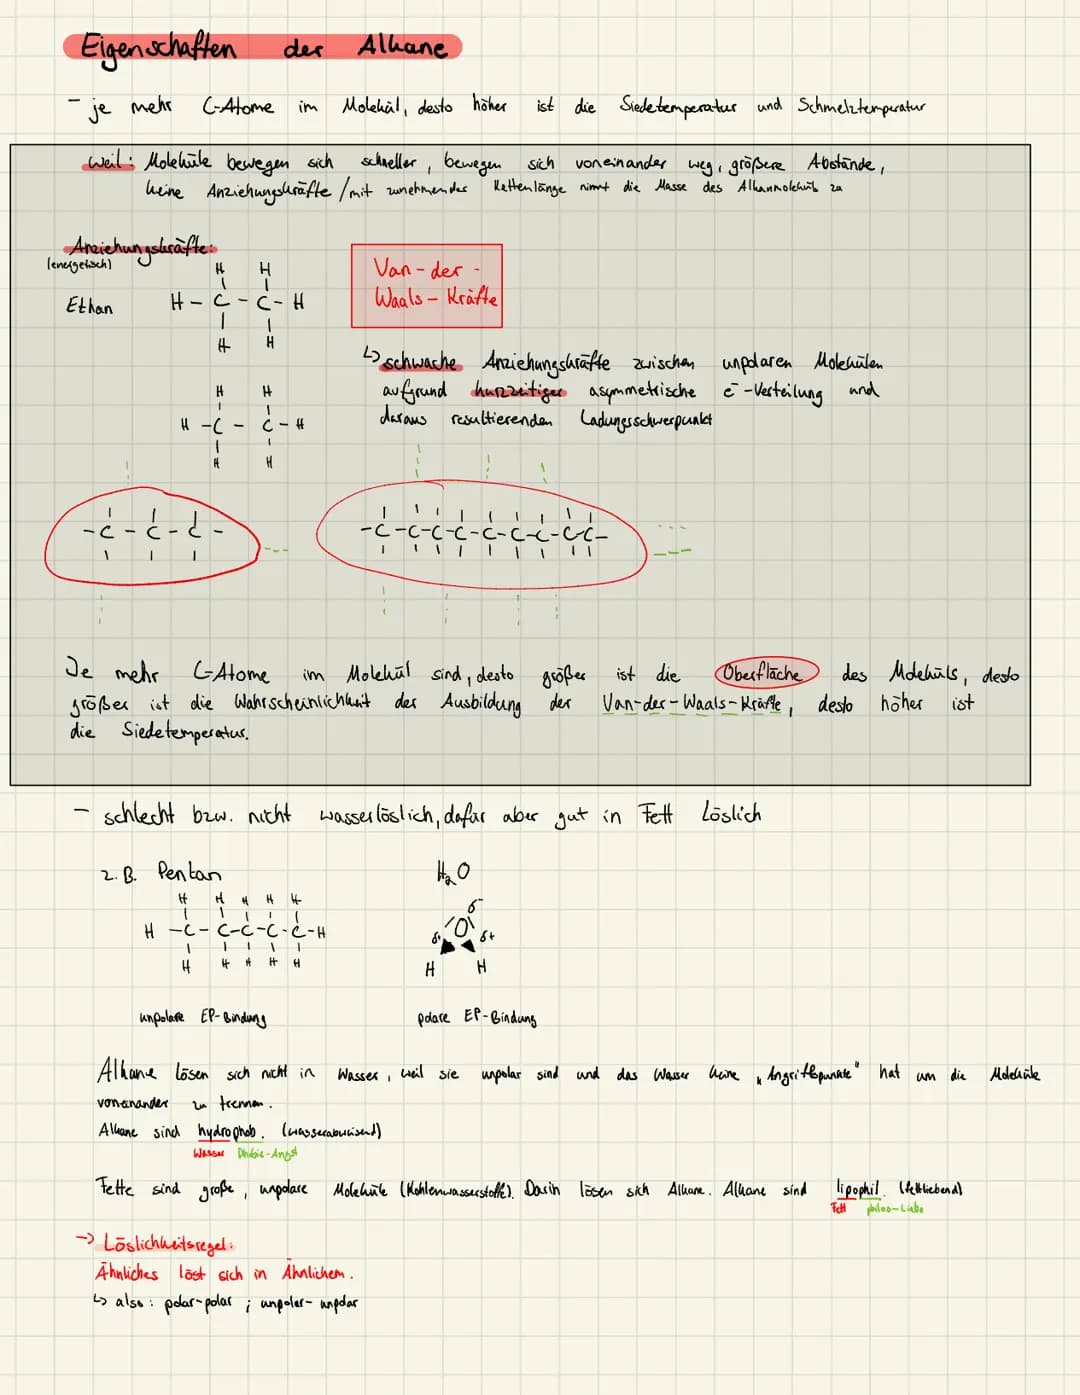 Eigenschaften der Alkane
- je mehr C-Atome im Molekül, desto höher ist die Siedetemperatur und Schmelztemperatur
Weil: Moleküle bewegen sich schneller, bewegen sich voneinander weg, größere Abstände,
keine Anziehungskräfte / mit zunehmender Kettenlänge nimmt die Masse des Alkanmoleküls zu
Anziehungskräfte:
(energetisch)
Van-der-
Waals-Kräfte
H H
Ethan H-C-C-H
H H
↳ schwache Anziehungskräfte zwischen unpolaren Molekülen
aufgrund kurzzeitiger asymmetrische e⁻-Verteilung und
daraus resultierenden Ladungsschwerpunkt
H H
H-C-C-H
H H
-C-C-C-
-C-C-C-C-C-C-C-C-C-
Je mehr C-Atome im Molekül sind, desto größer ist die Oberfläche des Moleküls, desto
größer ist die Wahrscheinlichkeit der Ausbildung der Van-der-Waals-Kräfte, desto höher ist
die Siedetemperatur.
- schlecht bzw. nicht wasserlöslich, dafür aber gut in Fett löslich
z.B. Pentan H₂O
H H H H H
H-C-C-C-C-C-H
H H H H H
δ-
O
δ+ δ+
H H
unpolare EP-Bindung polare EP-Bindung
Alkane lösen sich nicht in Wasser, weil sie unpolar sind und das Wasser keine „Angriffspunkte" hat um die Moleküle
voneinander zu trennen.
Alkane sind hydrophob. (wasserabweisend)
Wasser Phobie-Angst
Fette sind große, unpolare Moleküle (Kohlenwasserstoffe). Darin lösen sich Alkane. Alkane sind lipophil. (fettliebend)
Fett philoo-Liebe
-> Löslichkeitsregel:
Ähnliches löst sich in Ähnlichem.
↳ also: polar-polar ; unpolar-unpolar